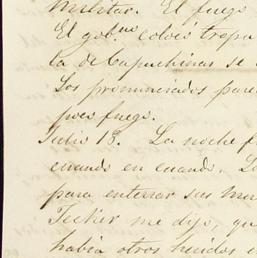 militar. El fuego
El gob.no colocó tropa
la de Capuchinas se
Los pronunciados pare
poco fuego.
Julio 18. La noche f
cuando en cuando. L
para enterrar sus mu
Techer me dijo, que
había otros heridos e